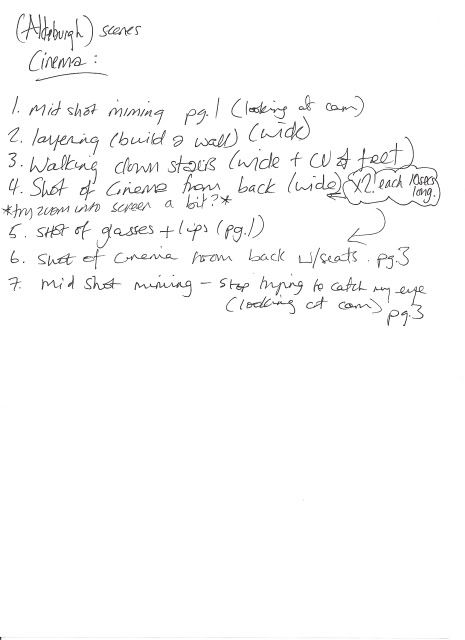 (Aldeburgh) scenes
Cinema :
1. Mid shot miming pg.1 (looking at cam)
2. layering (build a wall) (wide)
3. Walking down stairs (wide + CU of feet)
4. Shot of cinema from back (wide) x2! each 10secs long.
*try zoom into screen a bit?*
5. shot of glasses + lips (pg.1)
6. shot of cinema from back w/seats. pg.3
7. mid shot miming – stop trying to catch my eye
(looking at cam) pg.3